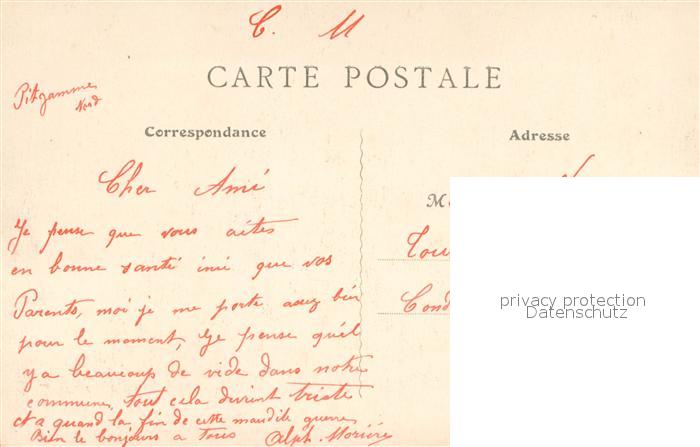 C. M
CARTE POSTALE
Pitgamme
Nord
Correspondance
Adresse
Cher Ami
Je pense que vous aites
en bonne santé inci que vos
Parents, moi je me porte assez bien
pour le moment, Je pense qu'el
y a beaucoup de vide dans notre
commune, tout cela devient triste
et a quand la fin de cette maudite guerre
Bien le bonjours a tous Alph. Morière
M
Tour
Cond
privacy protection
Datenschutz